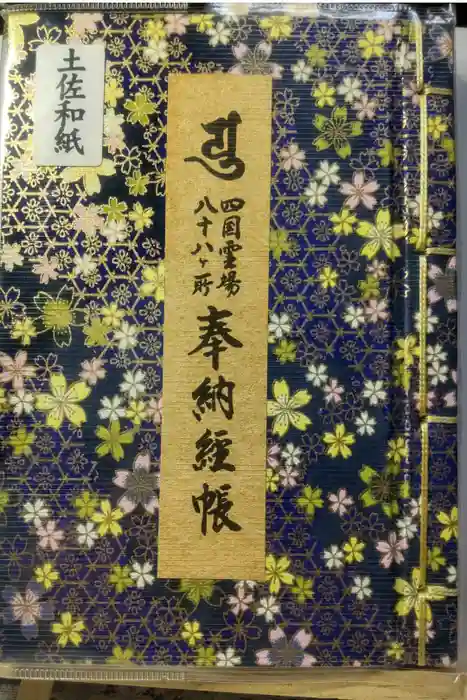 土佐和紙
四国霊場
八十八ヶ所
奉納経帳